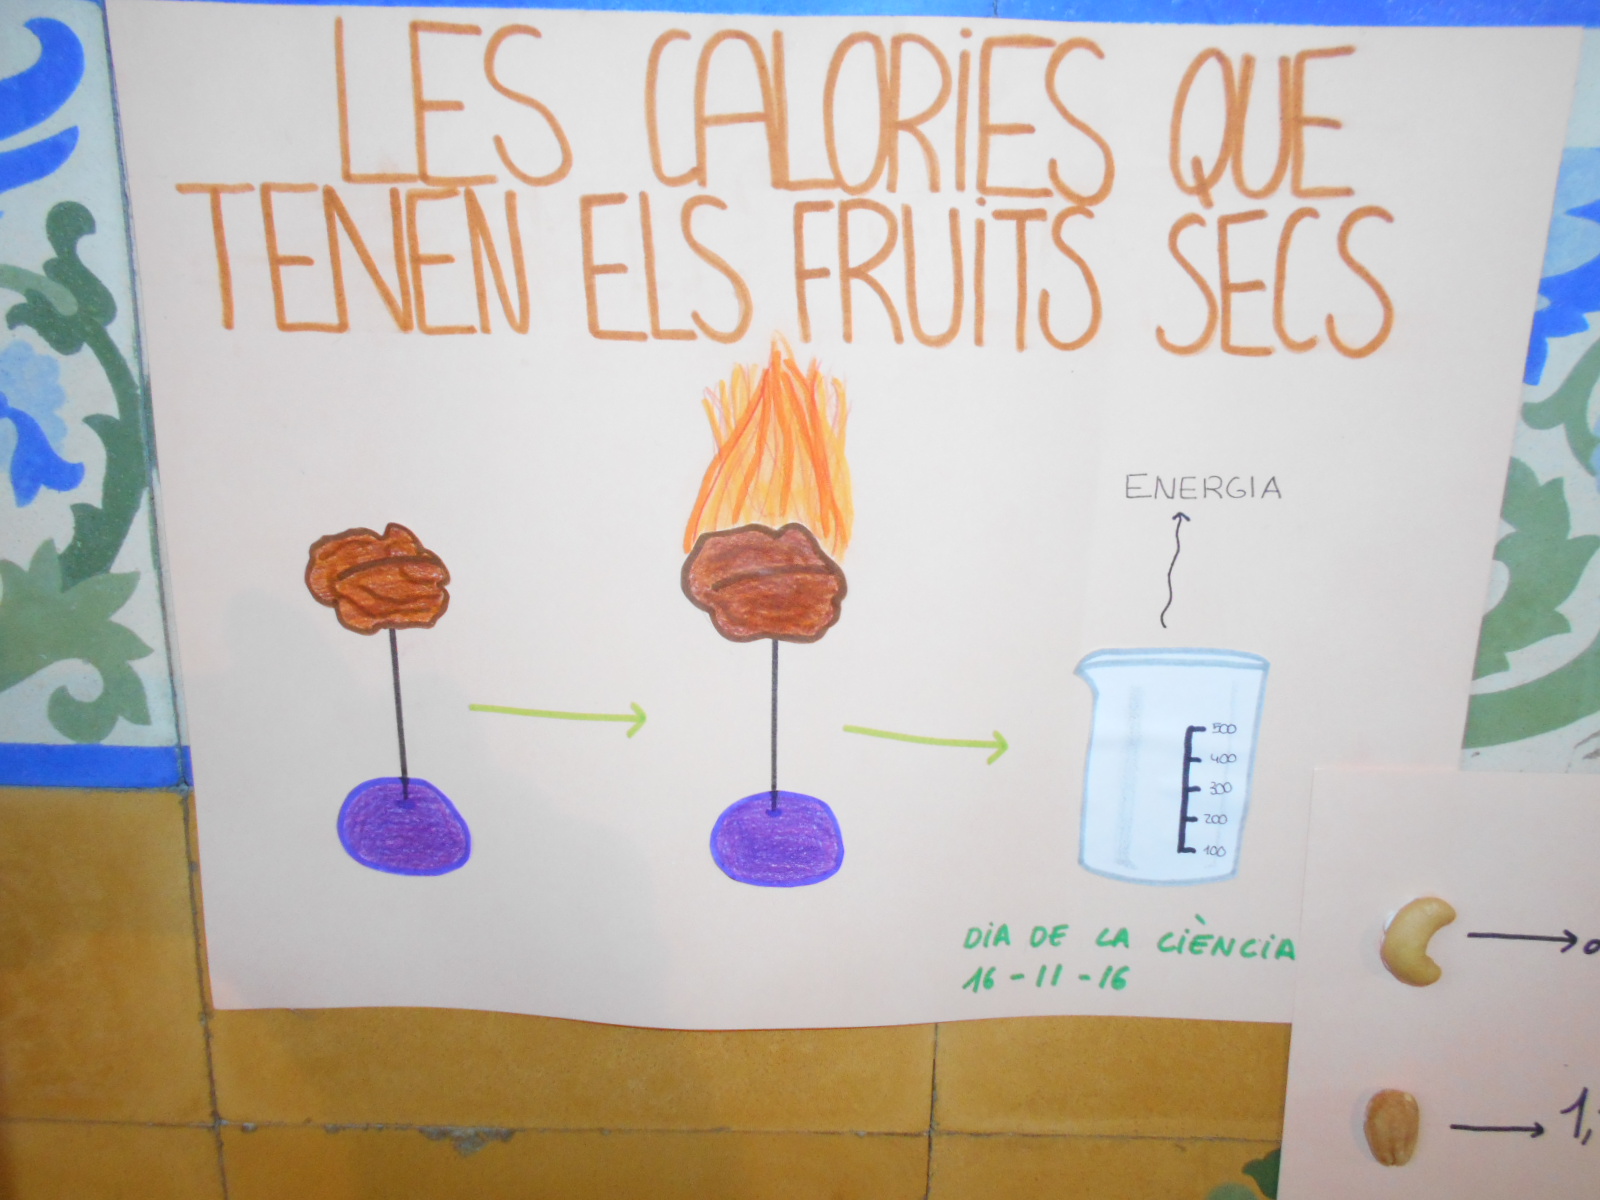 LES CALORiES QUE
TENEN ELS FRUiTS SECS
ENERGIA
500
400
300
200
100
DiA DE LA CiÈNCiA
16-11-16
1,